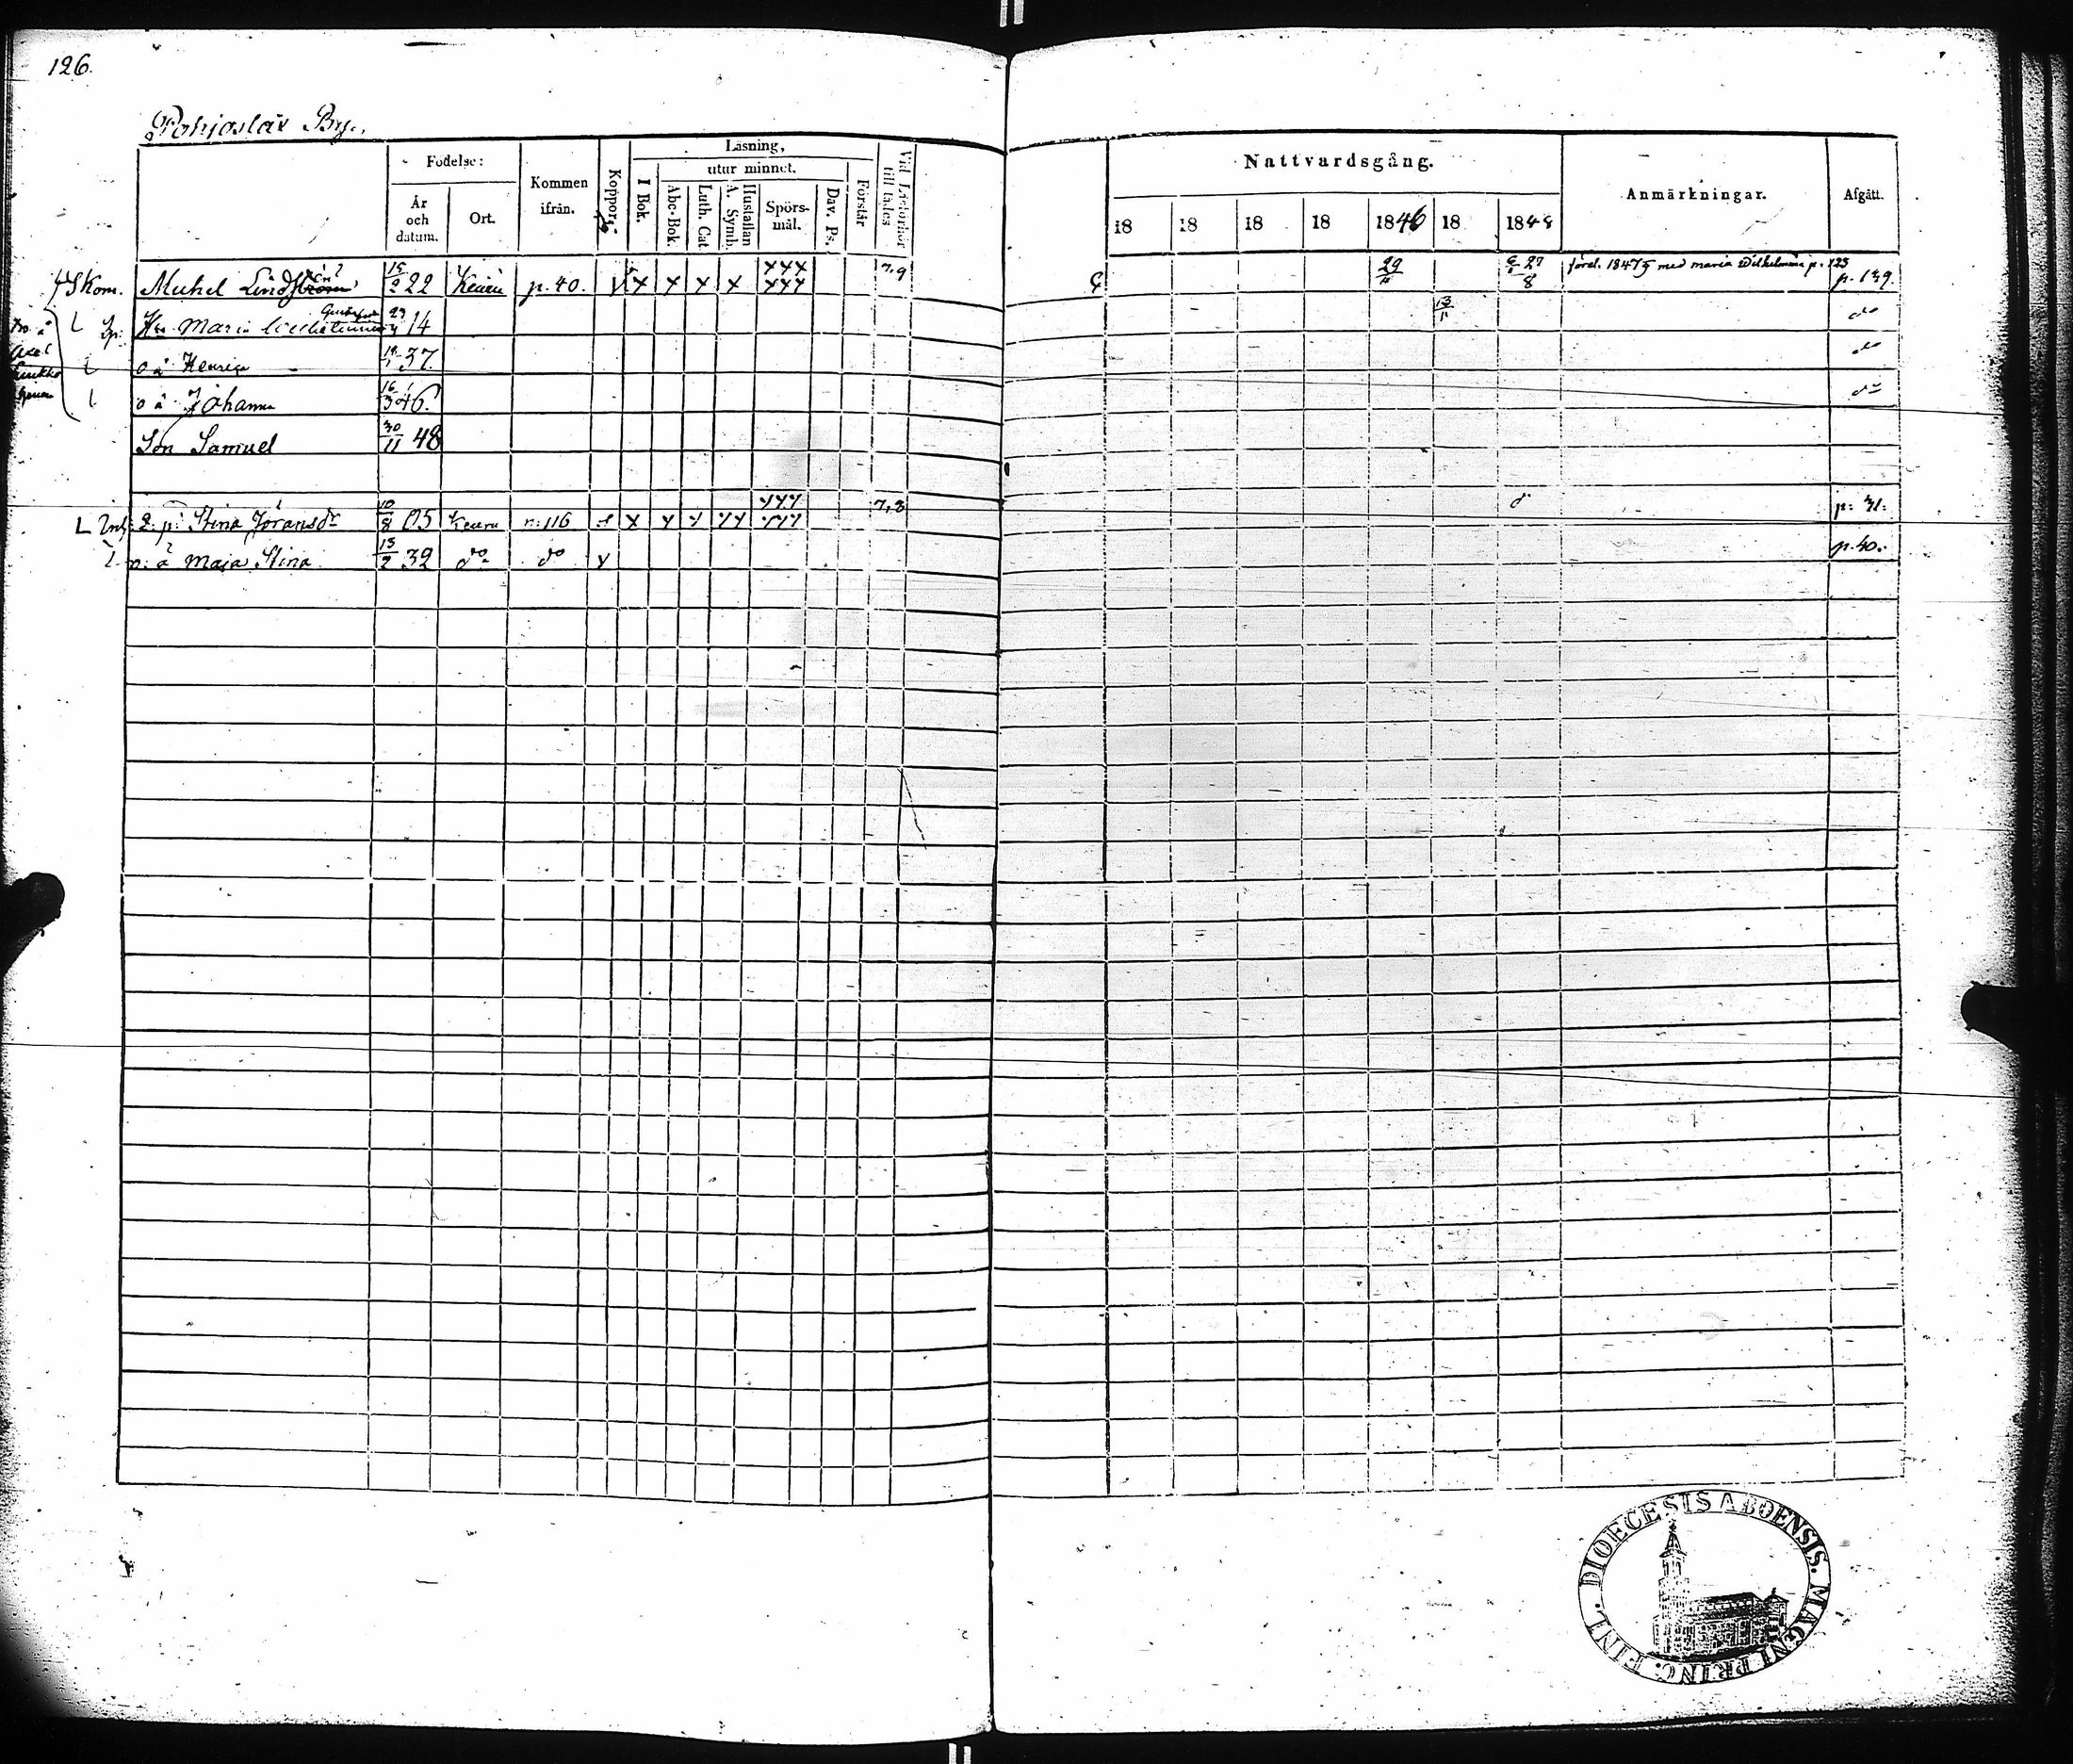 126.
Pohjoslax By.
Födelse:
År och datum.
Ort.
Kommen ifrån.
Koppor,
Läsning,
I Bok.
utur minnet.
Abc-Bok.
Luth. Cat.
Hustaflan A. Symb.
Spörsmål.
Dav. Ps.
Förstår
Vid Läsförhör till städes
Nattvardsgång.
18 18 18 18 1846 18 1848
Anmärkningar.
Afgått.
Skom. Michel Lindström 15/2 22 Keuru p. 40. x x x x xxx xxx 7.9 29/11 27/8 förel. 1847 med Maria Wilhelmina p. 123 p. 139.
Maria 14 13/11 do
o ä Henrica 37. do
o ä Johanna 16/3 46. do
Son Samuel 30/11 48
L Inh: Q. p. Stina Jöransdr 10/8 05 Keuru n: 116 x x x x xxx xxx 7,8 p: 31.
o: ä Maja Stina 13/2 39 do do p. 40.
DIOECESIS ABOENSIS. MAGNI PRINC. FINL.